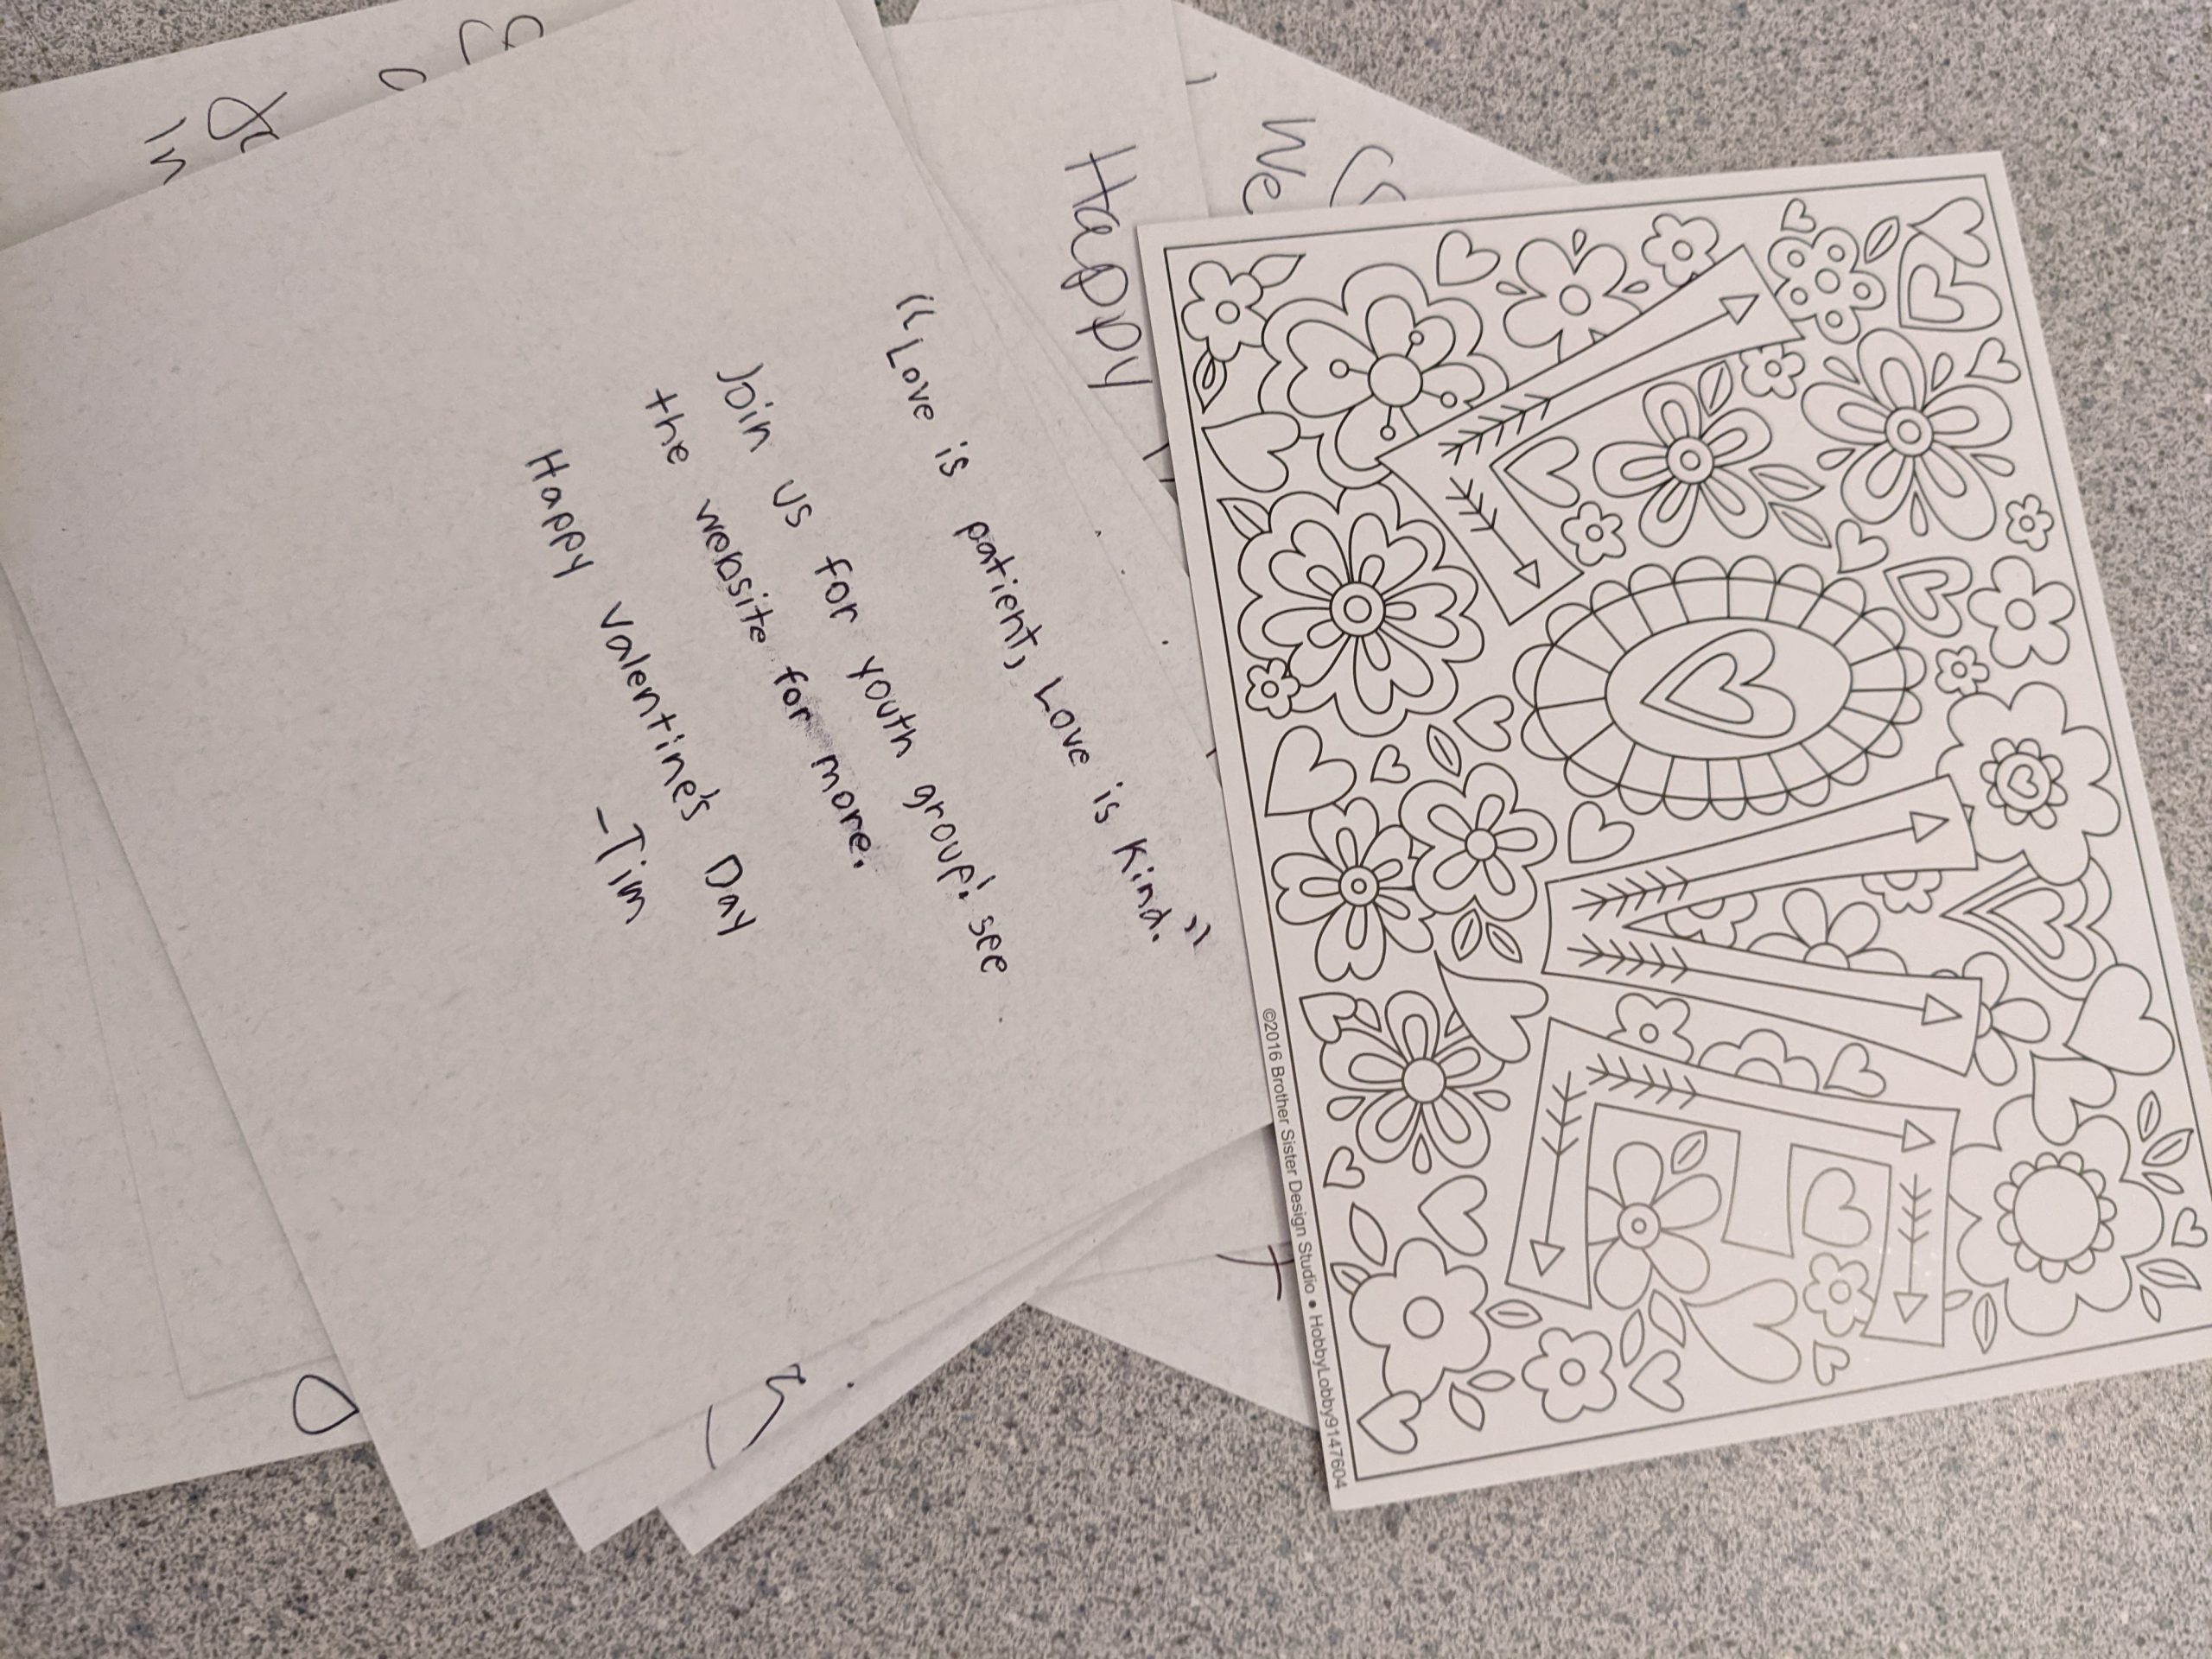 "Love is patient, Love is kind."
Join us for youth group! see
the website for more.
Happy Valentine's Day
-Tim
Happy
We
in
LOVE
©2016 Brother Sister Design Studio • HobbyLobby9147604